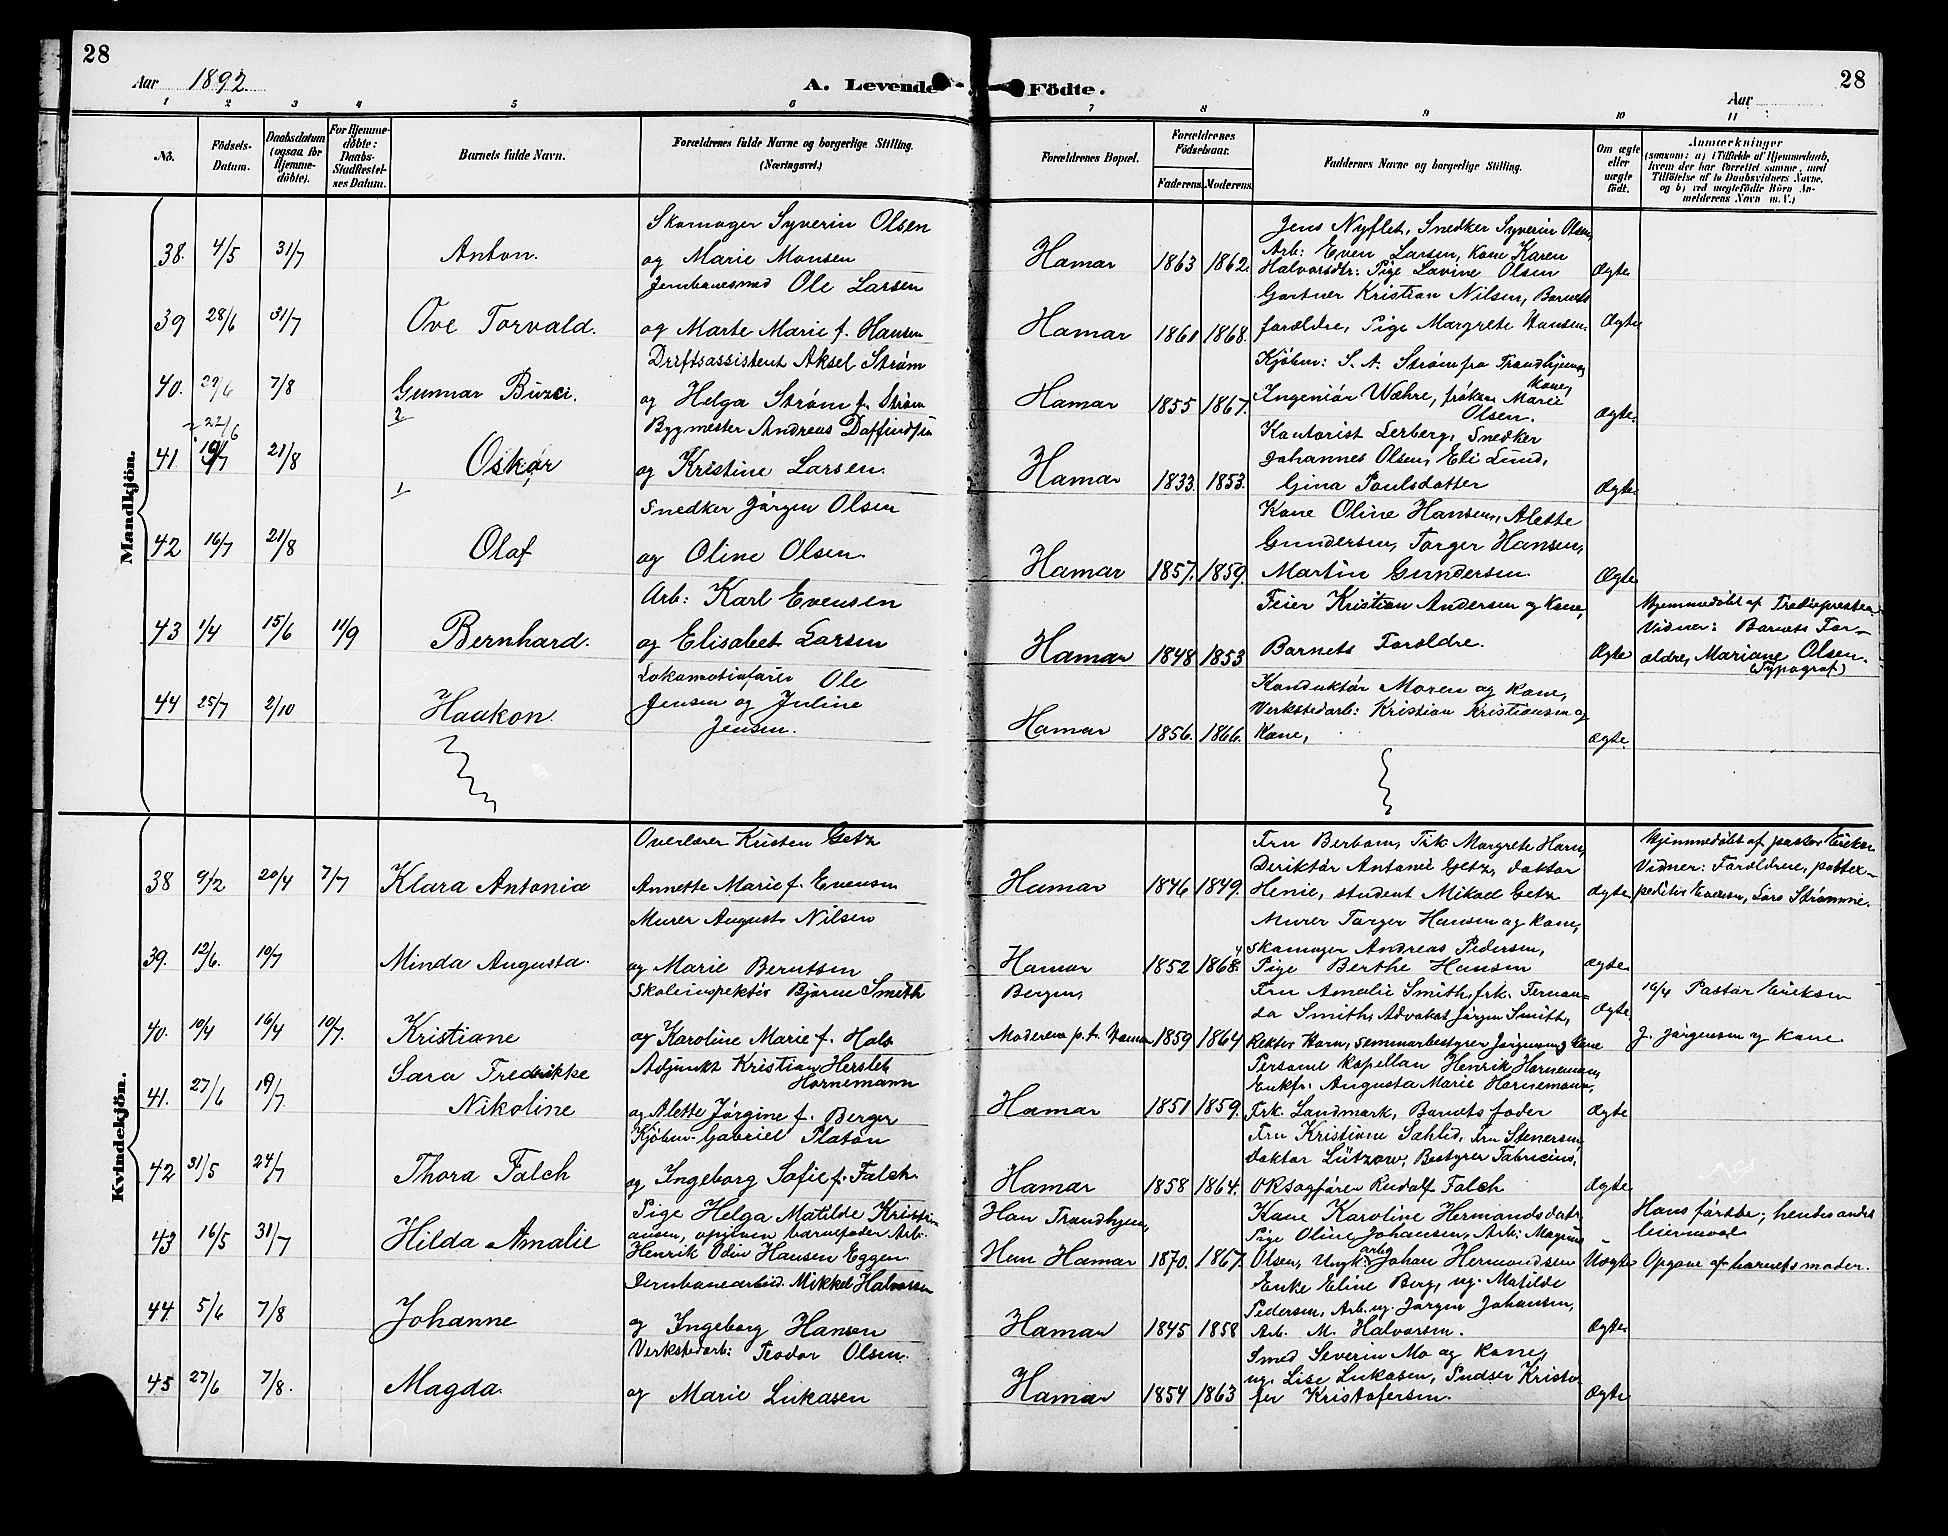 28
28
Aar 1892.
A. Levende Födte.
Aar
1 2 3 4 5 6 7 8 9 10 11
No.
Födsels-Datum.
Daabsdatum (ogsaa for Hjemme-döbte).
For Hjemme-döbte: Daabs-Stadfæstel-ses Datum.
Barnets fulde Navn.
Forældrenes fulde Navne og borgerlige Stilling.
(Næringsvei.)
Forældrenes Bopæl.
Forældrenes Födselsaar.
Faderens. Moderens.
Faddernes Navne og borgerlige Stilling.
Om ægte eller uægte födt.
Anmærkninger
(saasom: a) i Tilfælde af Hjemmedaab, hvem der har forrettet samme, med Tilföielse af to Daabsvidners Navne, og b) ved uægtefödte Börn An-melderens Navn m. V.)
Mandkjön.
38. 4/5 31/7 Anton.
Skomager Syverin Olsen
og Marie Monsen
Hamar 1863 1862.
Jens Nyflet, Snedker Syverin Olsen,
Arb: Even Larsen, Kone Karen
Halvorsdtr: Pige Lavine Olsen
Ægte
39 28/6 31/7 Ove Torvald.
Jernbanemand Ole Larsen
og Marte Marie f. Hansen
Hamar 1861 1868.
Gartner Kristian Nilsen, Barnets
forældre, Pige Margrete Hansen.
Ægte
40. 29/6 7/8 Gunnar
Driftsassistent Aksel Strøm
og Helga Strøm f. Strøm
Hamar 1855 1867.
Kjøbm: S. A. Strøm fra Trondhjem,
Ingeniør Wæhre, frøken Marie
Olsen.
Ægte.
22/6
2
41 19/7 21/8 Oskar
Bygmester Andreas
og Kristine Larsen.
Hamar 1833. 1853.
Kontorist Lerberg, Snedker
Johannes Olsen, Eli Lund,
Gina Paulsdatter
Ægte
1
42 16/7 21/8 Olaf
Snedker Jørgen Olsen
og Oline Olsen.
Hamar 1857. 1859.
Kone Oline Hansen, Alette
Gundersen, Torger Hansen,
Martin Gundersen.
Ægte
43 1/4 15/6 11/9 Bernhard.
Arb: Karl Evensen
og Elisabet Larsen
Hamar 1848 1853
Feier Kristian Andersen og Kone,
Barnets Forældre.
Ægte
Hjemmedøbt af
Vidner: Barnets For-
ældre, Mariane Olsen.
(Typograf)
44 25/7 2/10 Haakon.
Lokomotivfører Ole
Jensen og Juline
Jensen.
Hamar 1856. 1866.
Konduktør Moren og Kone,
Verkstedarb: Kristian Kristiansen og
Kone,
Ægte
Kvindekjön.
38 9/2 20/4 7/7 Klara Antonia
Overlærer Kristen Getz
Annette Marie f. Evensen
Hamar 1846 1849.
Fru Berbom, Frk Margrete Horn,
Deriktør Antonie Getz, doktor
Henie, student Mikael Getz
Ægte
Hjemmedøbt af pastor Eriksen
Vidner: Forældrene, postex-
peditør Evensen, Lars Strømme.
39. 12/6. 10/7 Minda Augusta.
Murer August Nilsen
og Marie Berntsen
Hamar 1852 1868.
Murer Torger Hansen og Kone,
Skomager Andreas Pedersen,
Pige Berthe Hansen
Ægte
40. 10/4 16/4 10/7. Kristiane
Skoleinspektør Bjarne Smith
og Karoline Marie f. Hals
Bergen,
Moderen p. t. Hamar 1859 1864
Fru Amalie Smith, frk. Fernan-
da Smith, Advokat Jørgen Smith,
Rektor Horn, Seminarbestyrer Jørgensen og Kone
Ægte
16/4 Pastor Eriksen
J. Jørgensen og Kone
41. 27/6 19/7. Sara Fredrikke
Nikoline
Adjunkt Kristian Hersleb
Hornemann
og Alette Jørgine f. Berger
Hamar 1851 1859.
Personel Kapellan Henrik Hornemann,
Enkfr: Augusta Marie Hornemann,
Frk. Landmark, Barnets fader
Ægte
42 31/5 24/7 Thora Falch
Kjøbm. Gabriel Platou
og Ingeborg Sofie f. Falch.
Hamar 1858 1864.
Fru Kristiane Sahlid, Fru Stenersen
Doktor Lützow, Bestyrer Fabricius,
ORsagfører Rudolf Falch
Ægte
43 16/5 31/7 Hilda Amalie
Pige Helga Matilde Kristi-
ansen, opgiven barnefader Arb:
Henrik Odin Hansen Eggen
Han Trondhjem,
Hun Hamar 1870. 1867.
Kone Karoline Hermandsdatr
Pige Oline Johansen, Arb: Magnus
Olsen, Ungk. arb. Johan Hermandsen
Uægte
Hans første, hendes andet
leiermaal
Opgave af barnets moder.
44. 5/6 7/8 Johanne
Jernbanearbeid. Mikkel Halvorsen
og Ingeborg Hansen
Hamar 1845 1858
Enke Eline Berg, ug. Matilde
Pedersen, Arb. ug. Jørgen Johansen,
Arb. M. Halvorsen.
Ægte
45 27/6 7/8. Magda.
Verkstedarb: Teodor Olsen.
og Marie Lukasen
Hamar 1854 1863
Smed Severin Mo og Kone,
ug. Lise Lukasen, Pudser Kristo
fer Kristofersen.
Ægte